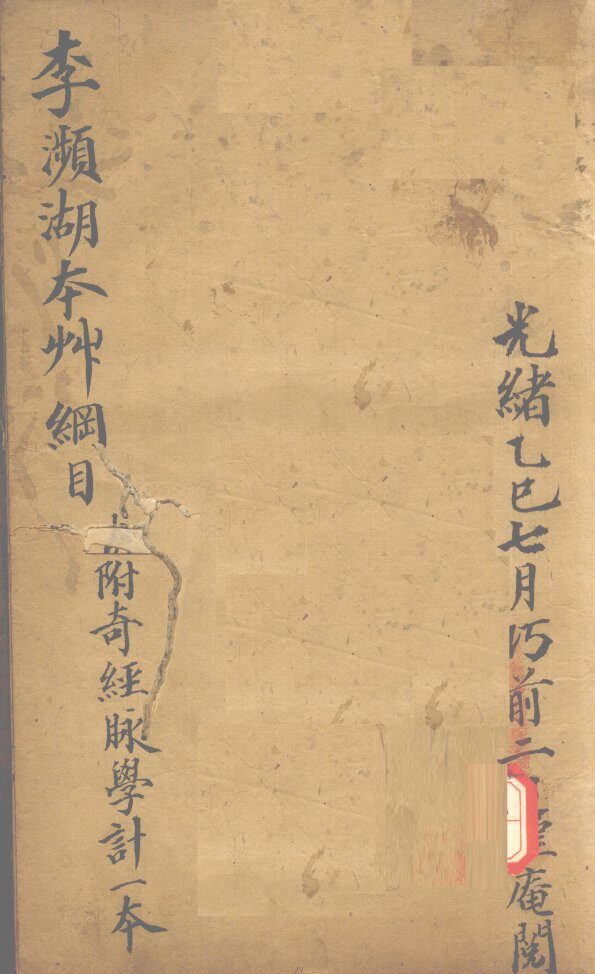 光緒乙巳七月巧前二庵閱
李瀕湖本艸綱目
附奇經脉學計一本